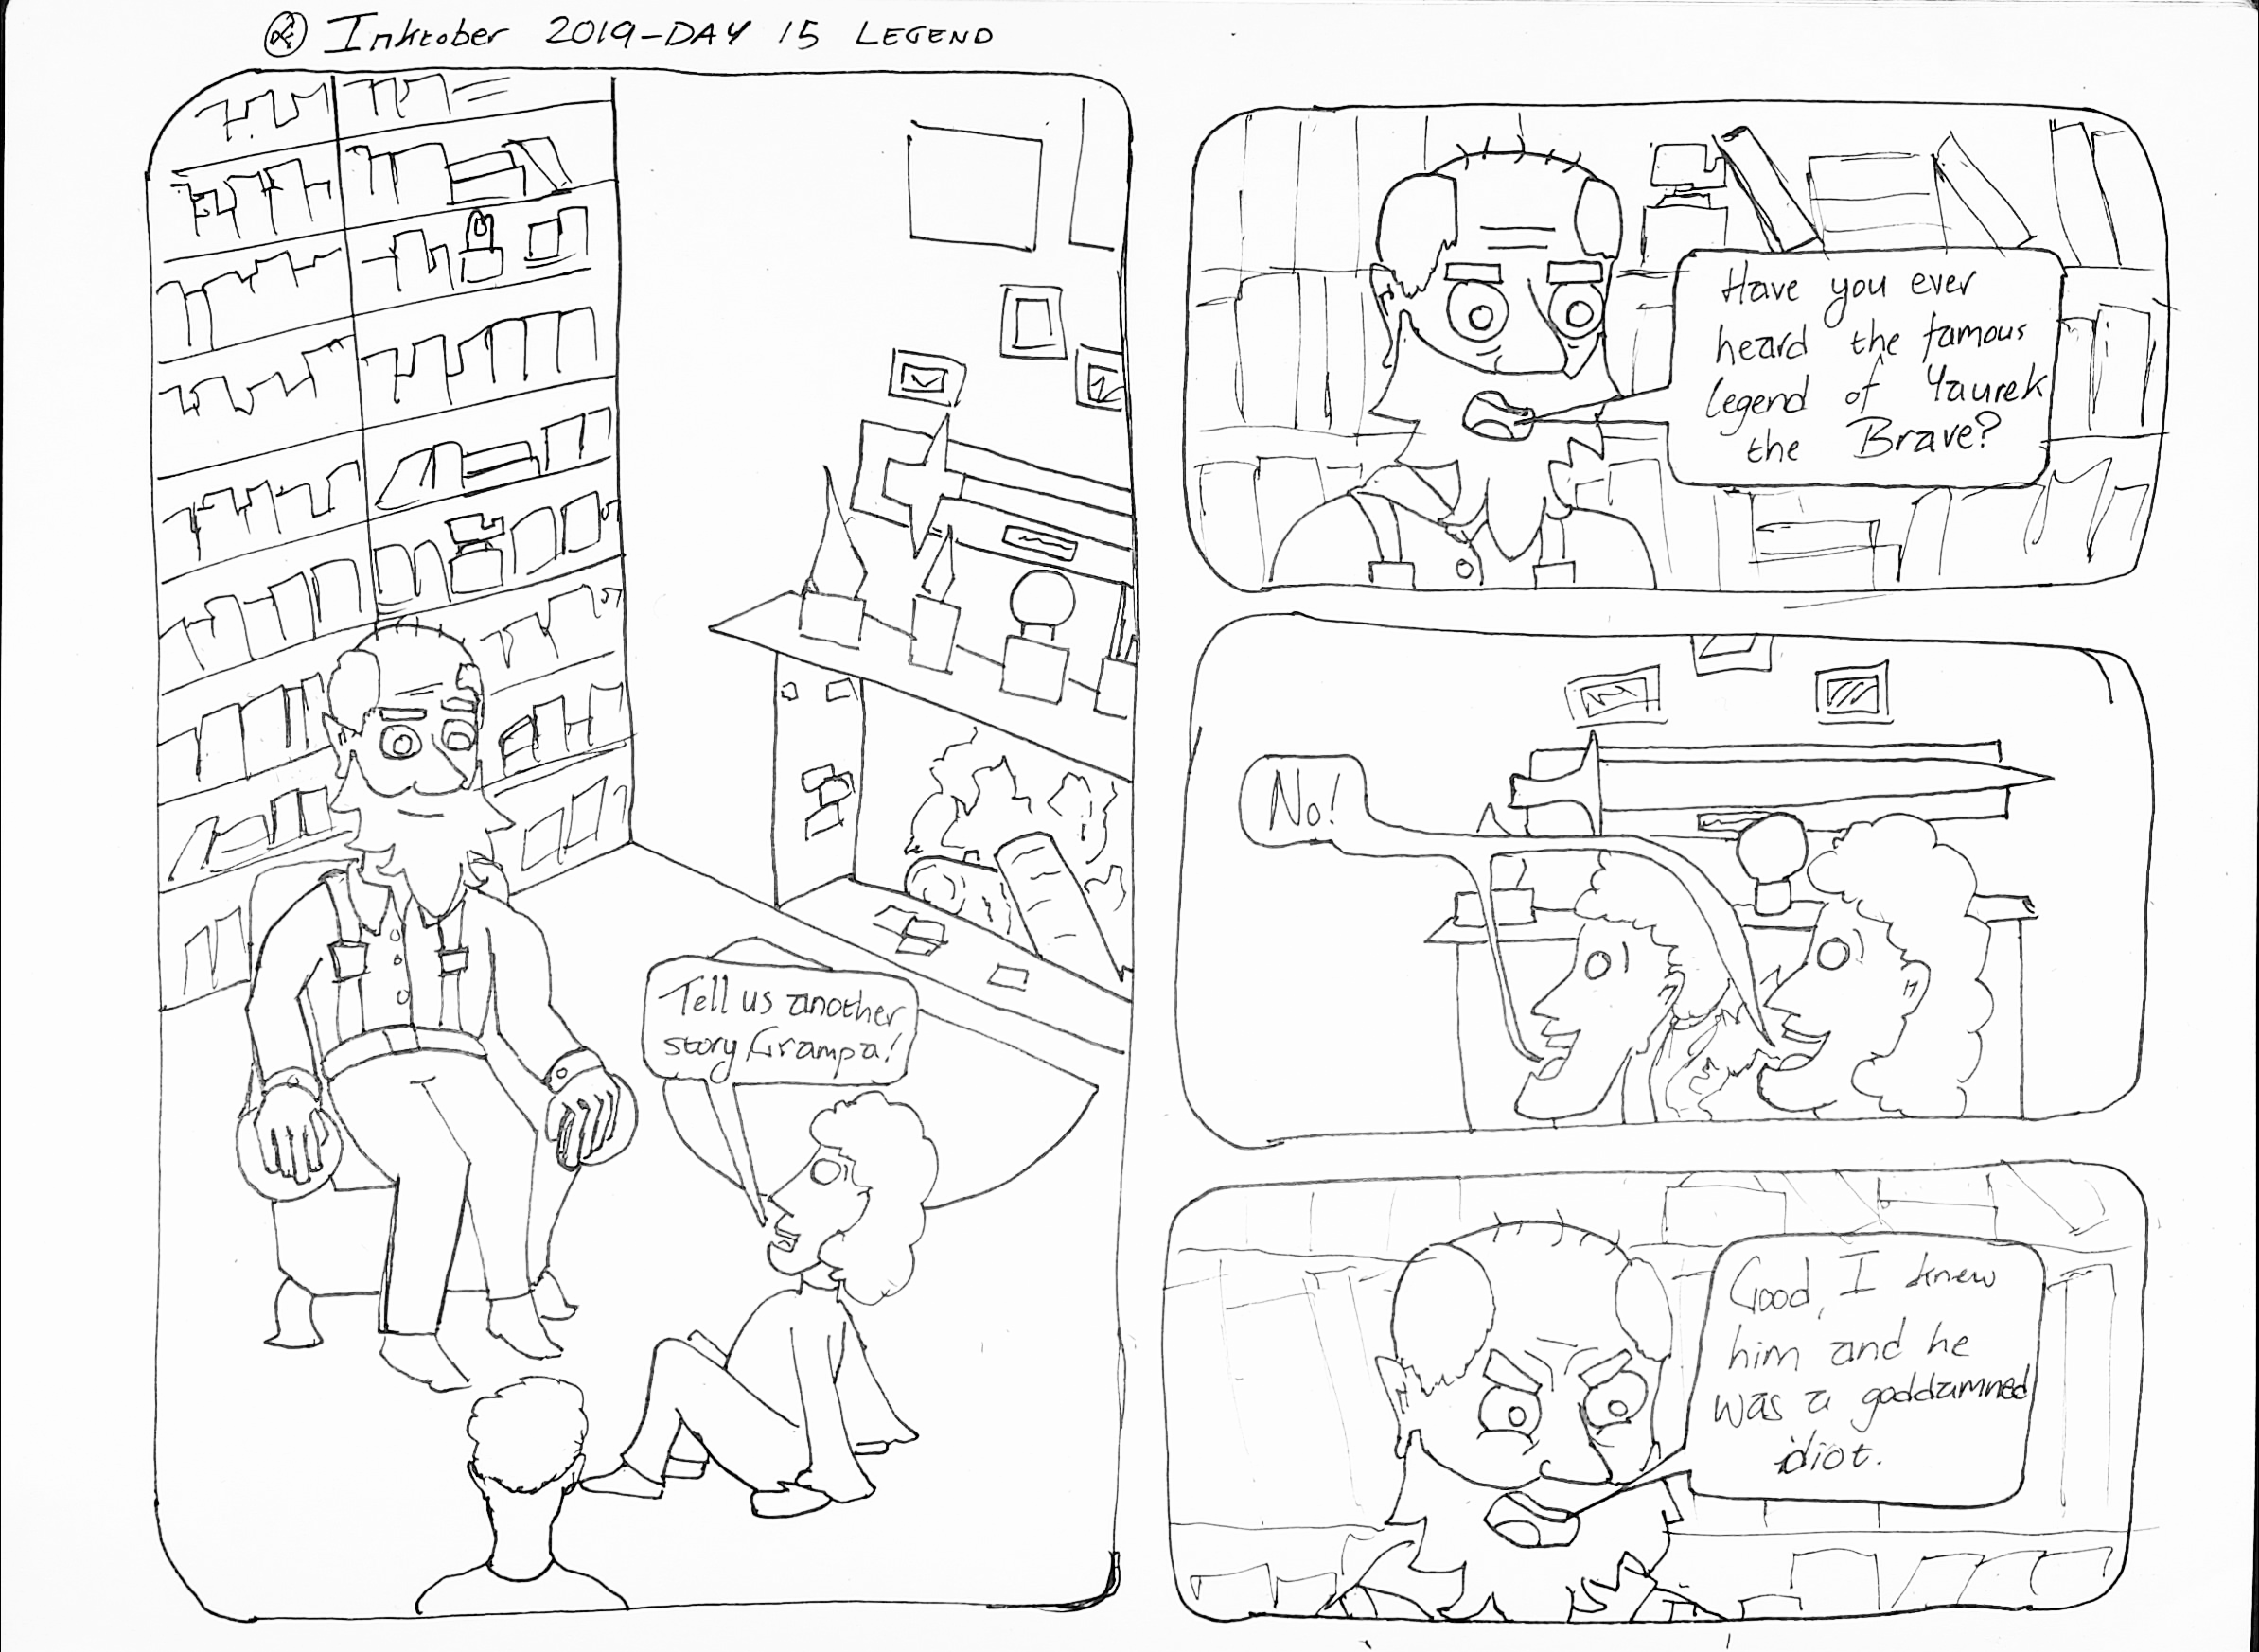 Inktober 2019-DAY 15 LEGEND
Tell us another
story Grampa!
Have you ever
heard the famous
legend of Yaurek
the Brave?
No!
Good, I knew
him and he
was a goddamned
idiot.